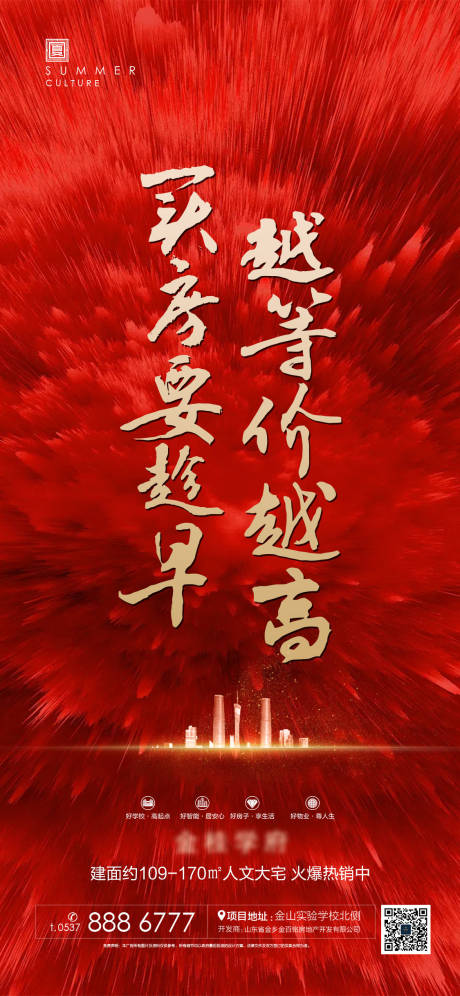 夏
SUMMER
CULTURE
买房要趁早
越等价越高
好学校·高起点 好智能·居安心 好房子·享生活 好物业·尊人生
建面约109-170㎡人文大宅 火爆热销中
t.0537 888 6777
项目地址:金山实验学校北侧
开发商:山东省金乡金百铭房地产开发有限公司